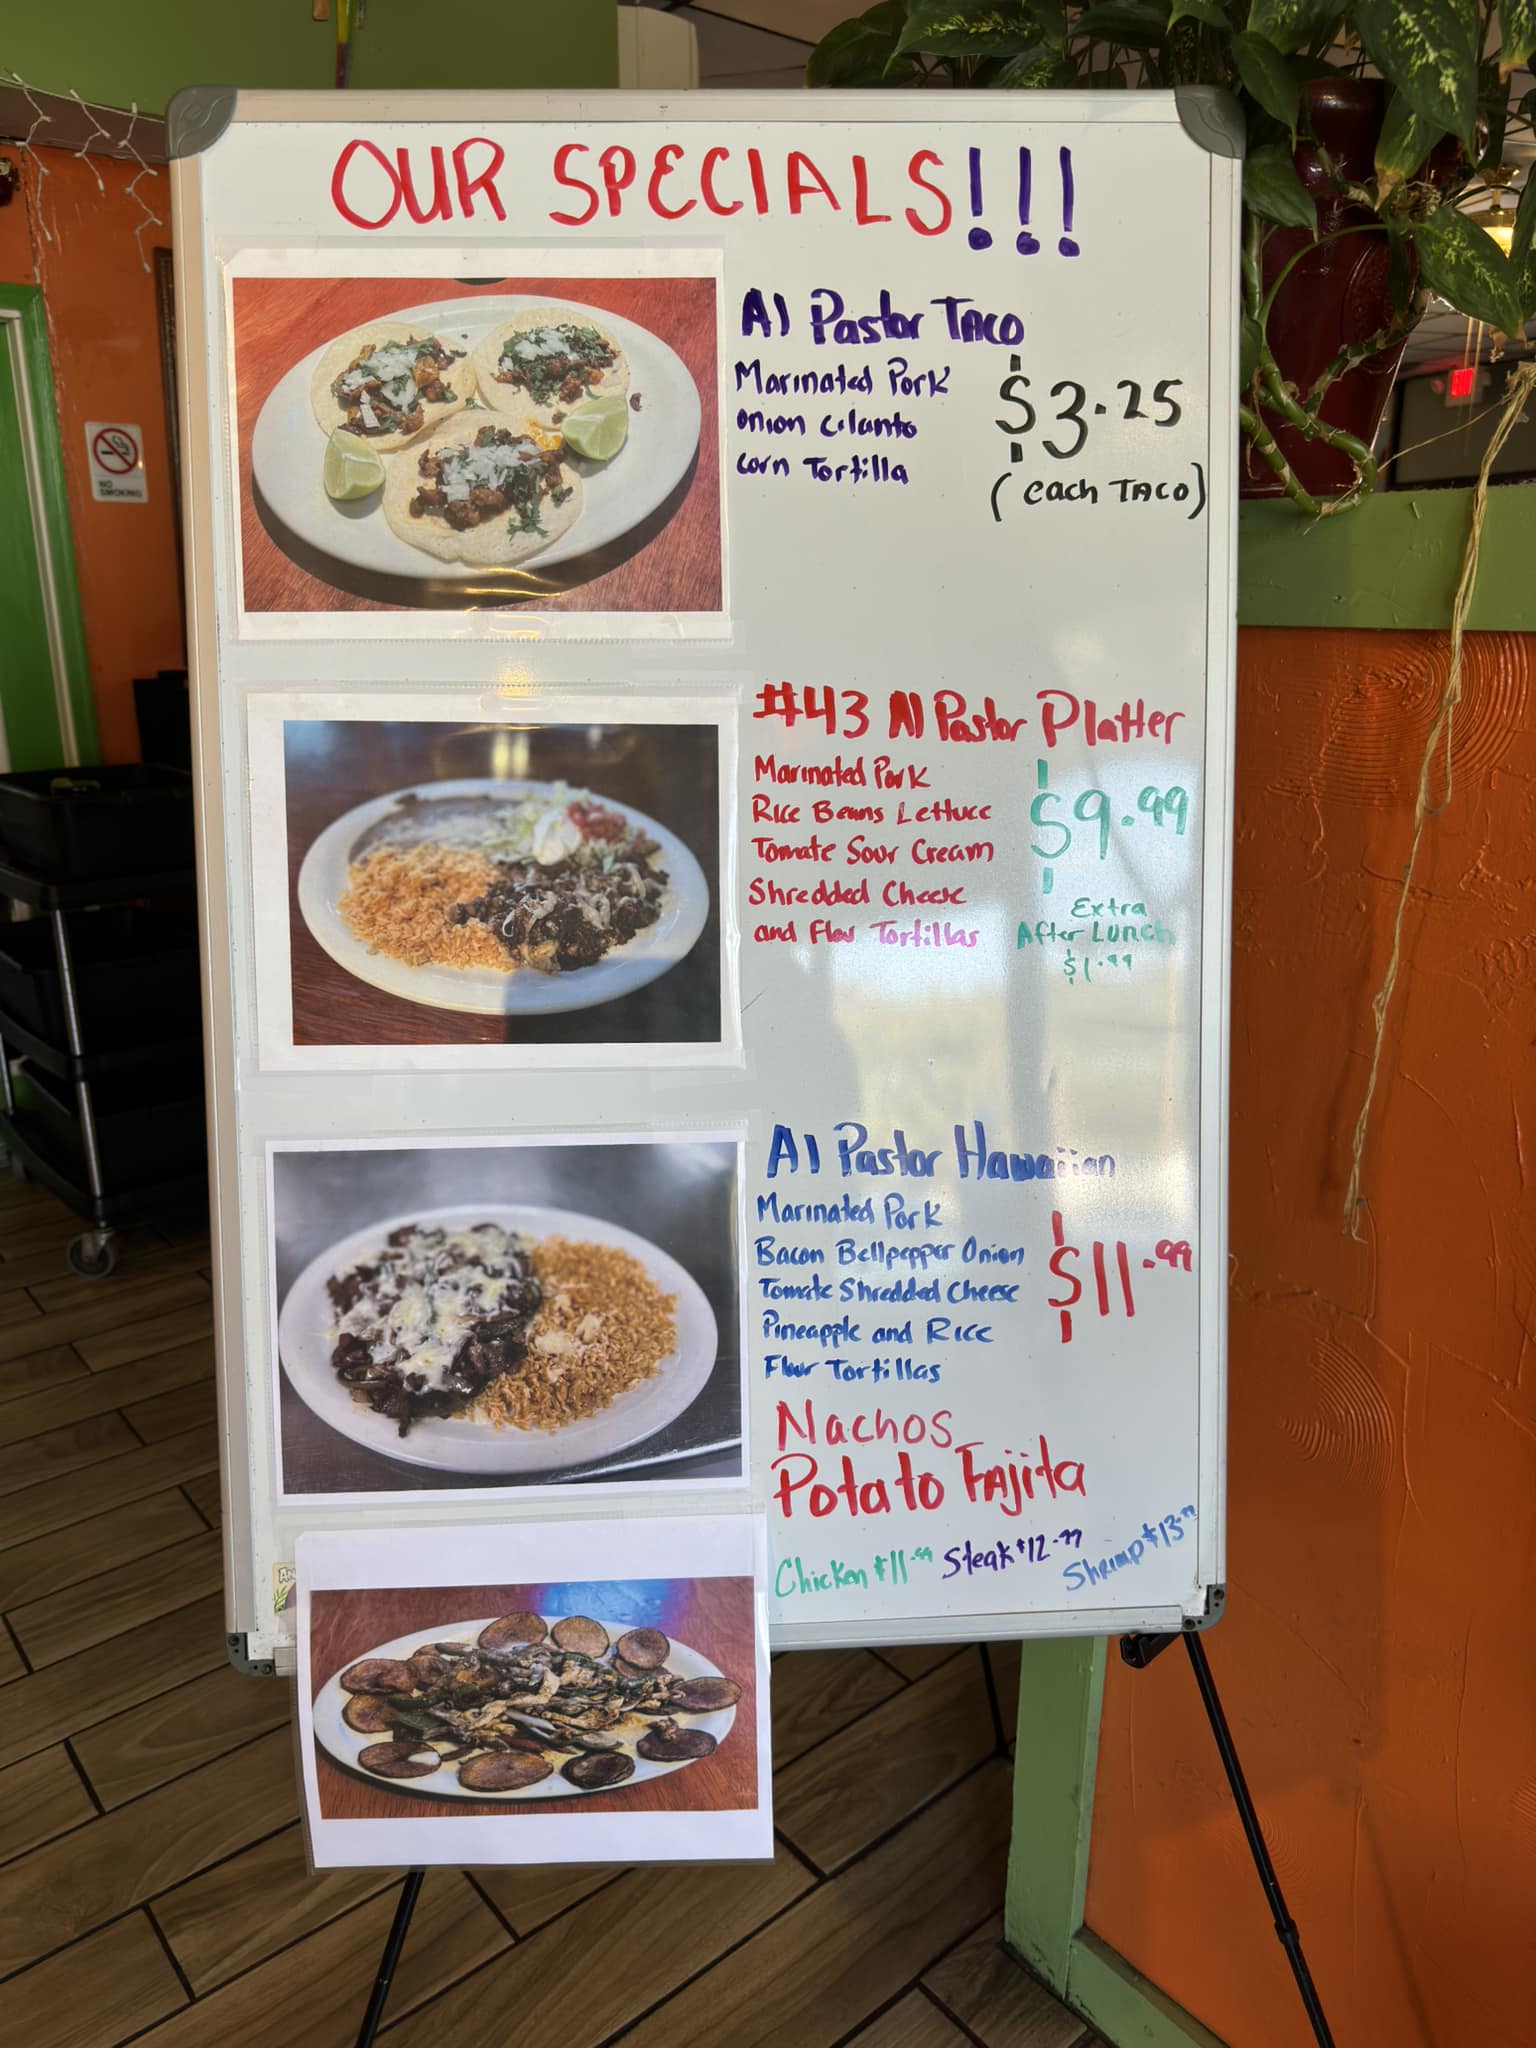 OUR SPECIALS!!!
Al Pastor TACO
Marinated Pork
onion cilanto
corn Tortilla
$3.25
(each TACO)
#43 Al Pastor Platter
Marinated Pork
Rice Beans Lettuce
Tomate Sour Cream
Shredded Cheese
and Flou Tortillas
$9.99
Extra
After LUNCH
$1.99
Al Pastor Hawaiian
Marinated Pork
Bacon Bellpepper Onion
Tomate Shredded Cheese
Pineapple and Rice
Flour Tortillas
$11.99
Nachos
Potato Fajita
Chicken $11.99 Steak $12.99 Shrimp $13.99
NO
SMOKING
EXIT